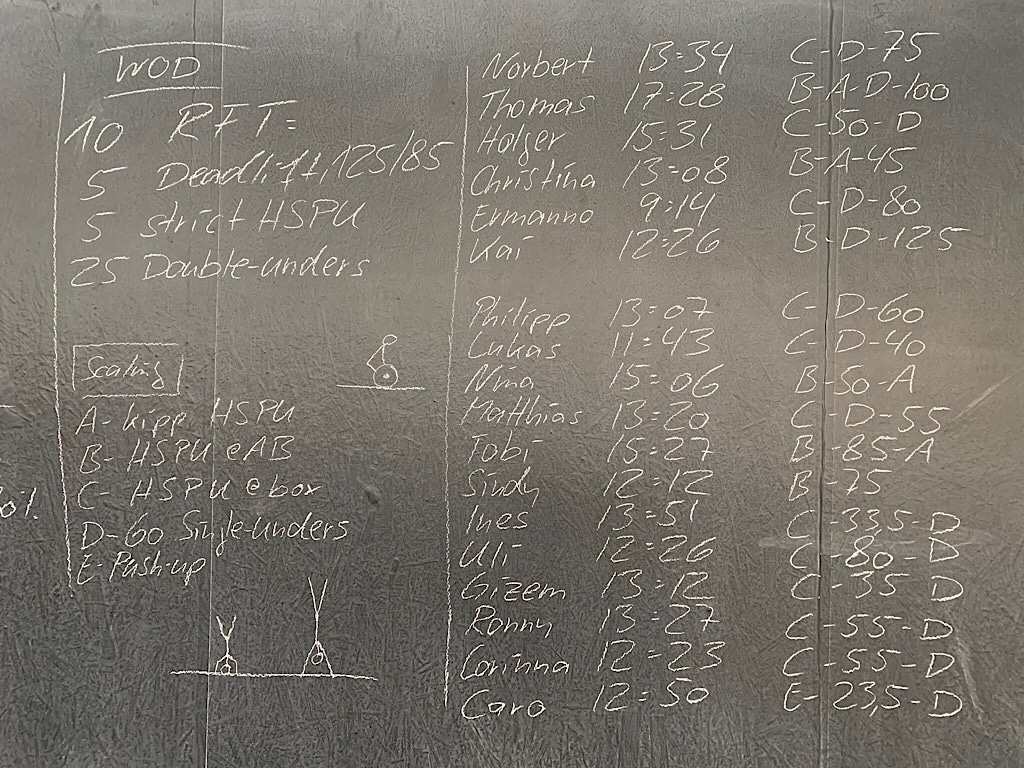 WOD
10 RFT:
5 Deadlift, 125/85
5 strict HSPU
25 Double-unders
Scaling
A- kipp HSPU
B- HSPU @ AB
C- HSPU @ box
D- 60 Single-unders
E- Push-up
Norbert 13:34 C-D-75
Thomas 17:28 B-A-D-100
Holger 15:31 C-50-D
Christina 13:08 B-A-45
Ermanno 9:14 C-D-80
Kai 12:26 B-D-125
Philipp 13:07 C-D-60
Lukas 11:43 C-D-40
Nina 15:06 B-50-A
Matthias 13:20 C-D-55
Tobi 15:27 B-85-A
Sindy 12:12 B-75
Ines 13:51 C-33,5-D
Uli 12:26 C-80-D
Gizem 13:12 C-35 D
Ronny 13:27 C-55-D
Corinna 12:23 C-55-D
Caro 12:50 E-23,5-D